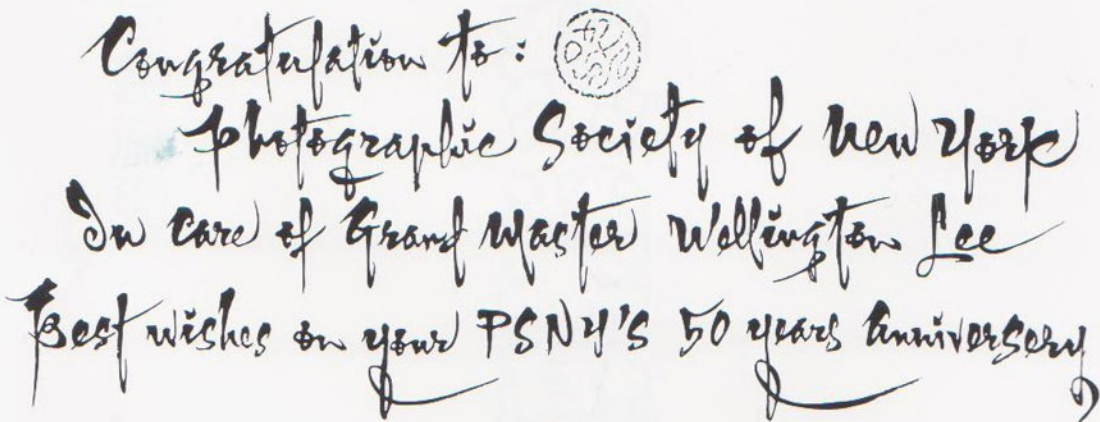 Congratulation to:
Photographic Society of New York
In care of Grand Master Wellington Lee
Best wishes on your PSNY's 50 years Anniversery